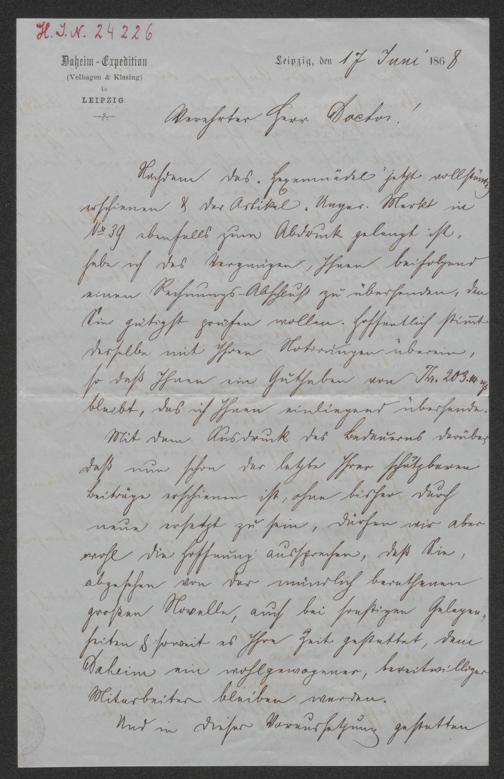 H. I. N. 24226
Daheim-Expedition
(Velhagen & Klasing)
in
LEIPZIG
Leipzig, den 17 Juni 1868
Verehrter Herr Doctor!
Nachdem das „Hexenmädel" jetzt vollständig
erschienen & der Artikel „Ungar. Markt in
No 39 ebenfalls zum Abdruck gelangt ist,
habe ich das Vergnügen, Ihnen beifolgend
einen Rechnungs-Abschluß zu übersenden, den
Sie gütigst prüfen wollen. Hoffentlich stimmt
derselbe mit Ihren Notirungen überein,
so daß Ihnen ein Guthaben von Thr. 203.
bleibt, das ich Ihnen einliegend übersende.
Mit dem Ausdruck des Bedauerns darüber
daß nun schon der letzte Ihrer schätzbaren
Beiträge erschienen ist, ohne bisher durch
neue ersetzt zu sein, dürfen wir aber
wohl die Hoffnung aussprechen, daß Sie,
abgesehen von der mündlich berathenen
großen Novelle, auch bei sonstigen Gelegen-
heiten & soweit es Ihre Zeit gestattet, dem
Daheim ein wohlgewogener, bereitwilliger
Mitarbeiter bleiben werden.
Und in dieser Voraussetzung gestatten